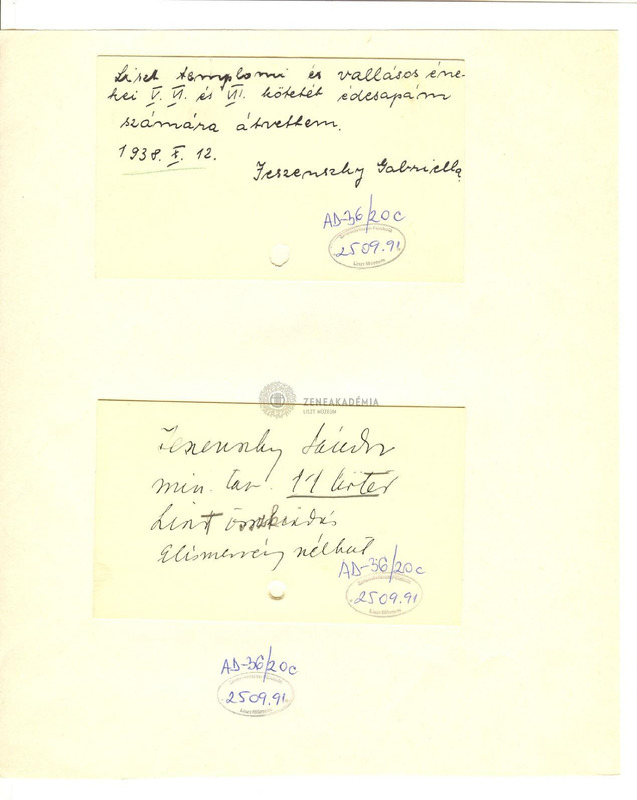 Liszt templomi és vallásos éne-
kei V. VI. és VII. kötetét édesapám
számára átvettem.
1938. X. 12.
Jeszenszky Gabriella
AD-36/20c
Liszt Múzeum
2509.91
ZENEAKADÉMIA
LISZT MÚZEUM
Jeszenszky Sándor
min. tan. 11 kötet
Liszt összkiadás
Elismervény nélkül
AD-36/20c
2509.91
Liszt Múzeum
AD-36/20c
2509.91
Liszt Múzeum